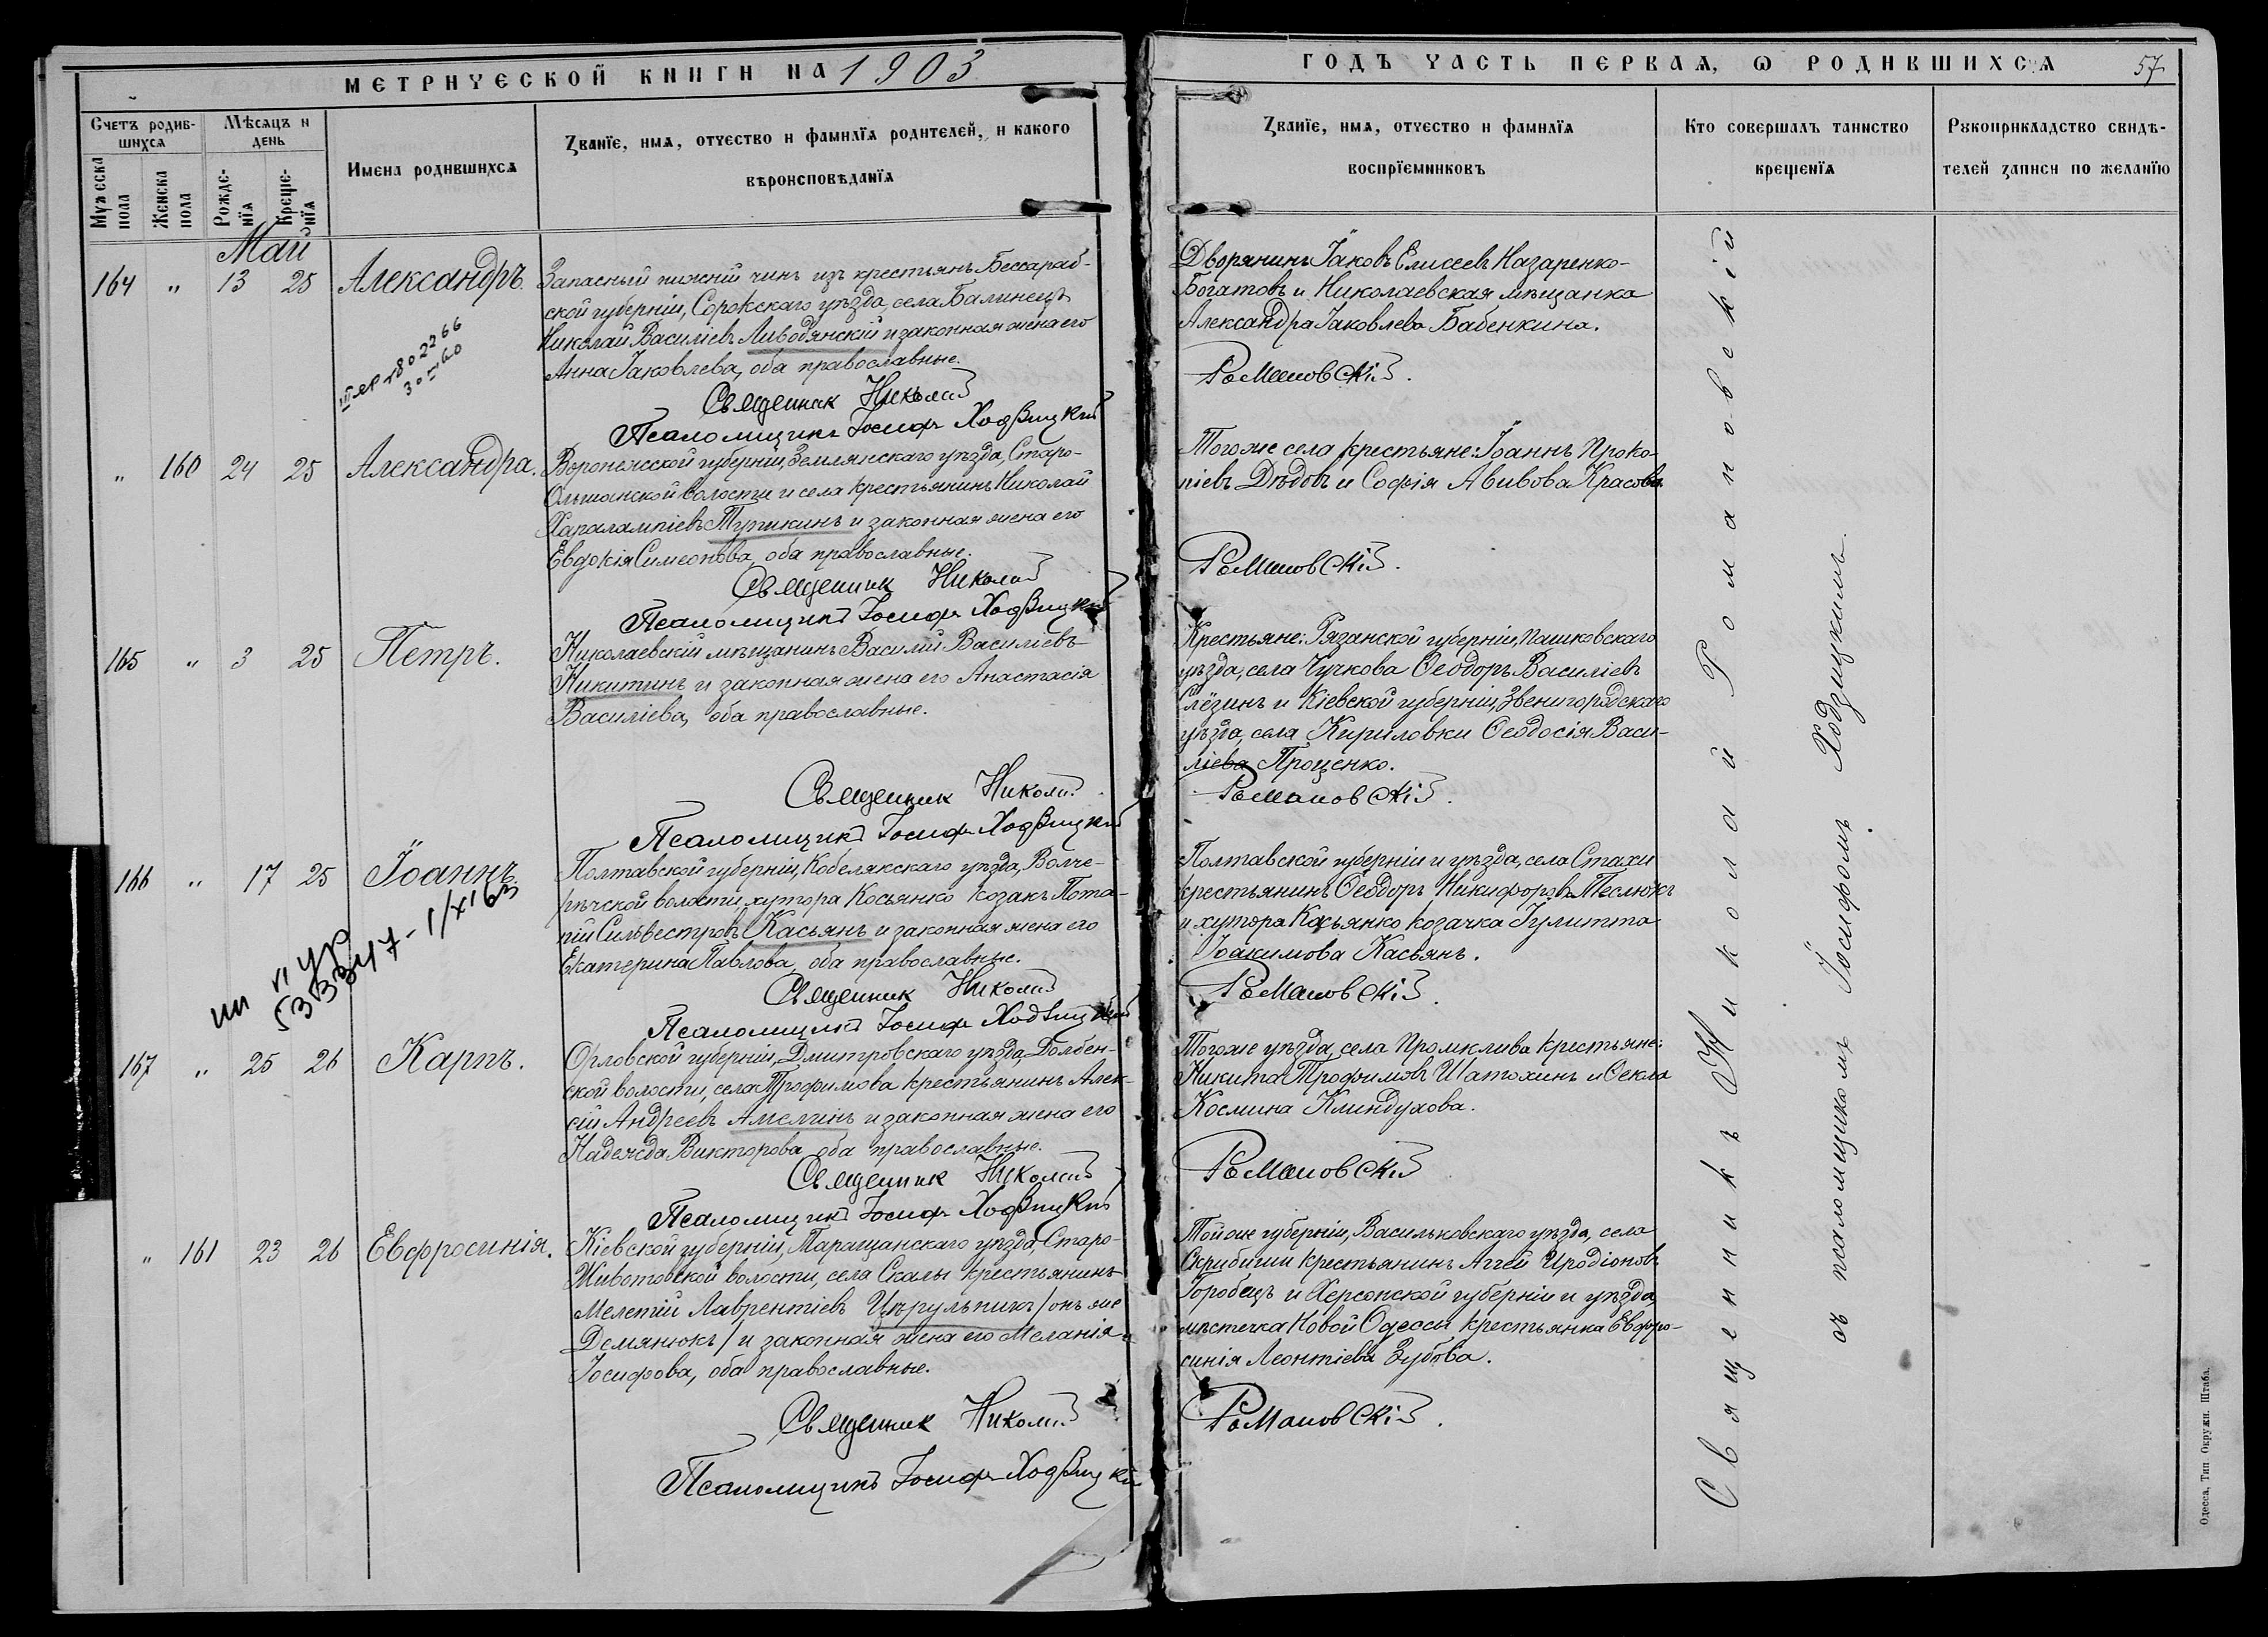 МЕТРИЧЕСКОЙ КНИГИ НА 1903
Счетъ родив-
шихся
Мѣсяцъ и
день
Имена родившихся
Званїе, имя, отчество и фамилїя родителей, и какого
вѣроисповѣданїя
Мужеска
пола
Женска
пола
Рожде-
нїя
Креще-
нїя
Май
164 " 13 25 Александръ.
Запасный нижній чинъ изъ крестьянъ Бессараб-
ской губерніи, Сорокскаго уѣзда, села Балинецъ
Николай Василіевъ Ливодянскій и законная жена его
Анна Іаковлева, оба православные.
Священник Николай
Псаломщикъ Іосифъ Ходзицкій
" 160 24 25 Александра.
Воронежской губерніи, Землянскаго уѣзда, Старо-
Ольшанской волости и села крестьянинъ Николай
Харалампіевъ Тупикинъ и законная жена его
Евдокія Симеонова, оба православные.
Священник Николай
Псаломщикъ Іосифъ Ходзицкій
165 " 3 25 Петръ.
Николаевскій мѣщанинъ Василій Василіевъ
Никитинъ и законная жена его Анастасія
Василіева, оба православные.
Священник Николай
Псаломщикъ Іосифъ Ходзицкій
166 " 17 25 Іоаннъ.
53347-1/XI63
Полтавской губерніи, Кобелякскаго уѣзда, Волче-
рѣчской волости, хутора Косьянко козакъ Пота-
пій Сильвестровъ Касьянъ и законная жена его
Екатерина Павлова, оба православные.
Священник Николай
Псаломщикъ Іосифъ Ходзицкій
167 " 25 26 Карпъ.
Орловской губерніи, Дмитровскаго уѣзда, Долбен-
ской волости, села Трофимова крестьянинъ Алек-
сій Андреевъ Амелинъ и законная жена его
Надежда Викторова, оба православные.
Священник Николай
Псаломщикъ Іосифъ Ходзицкій
" 161 23 26 Евфросинія.
Кіевской губерніи, Таращанскаго уѣзда, Старо-
Животовской волости, села Скалы крестьянинъ
Мелетій Лаврентіевъ Цѣрульникъ /онъ же
Демянюкъ/ и законная жена его Меланія
Іосифова, оба православные.
Священник Николай
Псаломщикъ Іосифъ Ходзицкій
ГОДЪ ЧАСТЬ ПЕРВАЯ, Ѡ РОДИВШИХСЯ 57
Званїе, имя, отчество и фамилїя
воспрїемниковъ
Кто совершалъ таинство
крещенїя
Рукоприкладство свидѣ-
телей записи по желанїю
Дворянинъ Іаковъ Елисеевъ Назаренко-
Богатовъ и Николаевская мѣщанка
Александра Іаковлева Бабенкина.
Романовскій.
Того же села крестьяне: Іоаннъ Проко-
піевъ Дѣдовъ и Софія Авивова Красова
Романовскій.
Крестьяне: Рязанской губерніи, Пашковскаго
уѣзда, села Чучкова Ѳеодоръ Василіевъ
Слёзинъ и Кіевской губерніи, Звенигородскаго
уѣзда, села Кириловки Ѳеодосія Васи-
ліева Проценко.
Романовскій.
Полтавской губерніи и уѣзда, села Стахи
крестьянинъ Ѳеодоръ Никифоровъ Теслюкъ
и хутора Касьянко козачка Іулитта
Іоакимова Касьянъ.
Романовскій.
Того же уѣзда, села Промклива крестьяне:
Никита Трофимовъ Шатохинъ и Ѳекла
Космина Клиндухова.
Романовскій
Той же губерніи, Васильковскаго уѣзда, села
Скрибиши крестьянинъ Аггей Иродіоновъ
Горобецъ и Херсонской губерніи и уѣзда,
мѣстечка Новой Одессы крестьянка Евфро-
синія Леонтіева Зубова.
Романовскій.
Священникъ Николай Романовскій
съ псаломщикомъ Іосифомъ Ходзицкимъ.
Одесса, Тип. Окружн. Штаба.